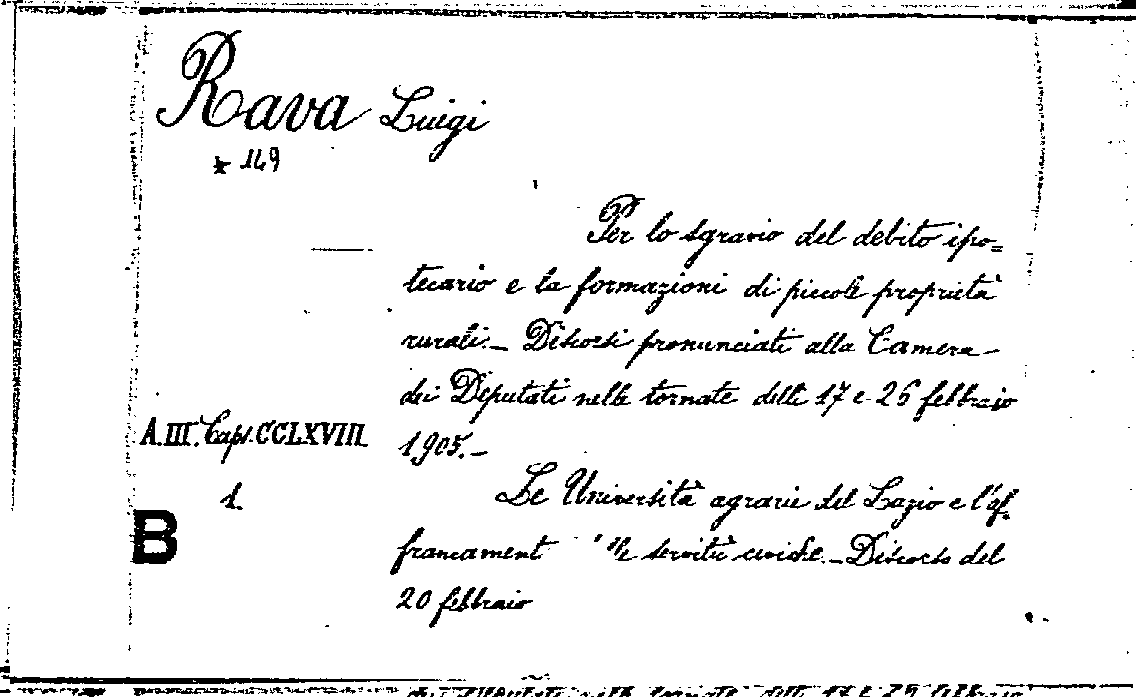 Rava Luigi
* 149
Per lo sgravio del debito ipo=
tecario e la formazioni di piccole proprietà
rurali._ Discorsi pronunciati alla Camera
dei Deputati nelle tornate delli 17 e 26 febbraio
1905._
A.III. Caps. CCLXVIII.
1.
Le Università agrarie del Lazio e l'af-
francament servitù civiche._ Discorso del
20 febbraio
B